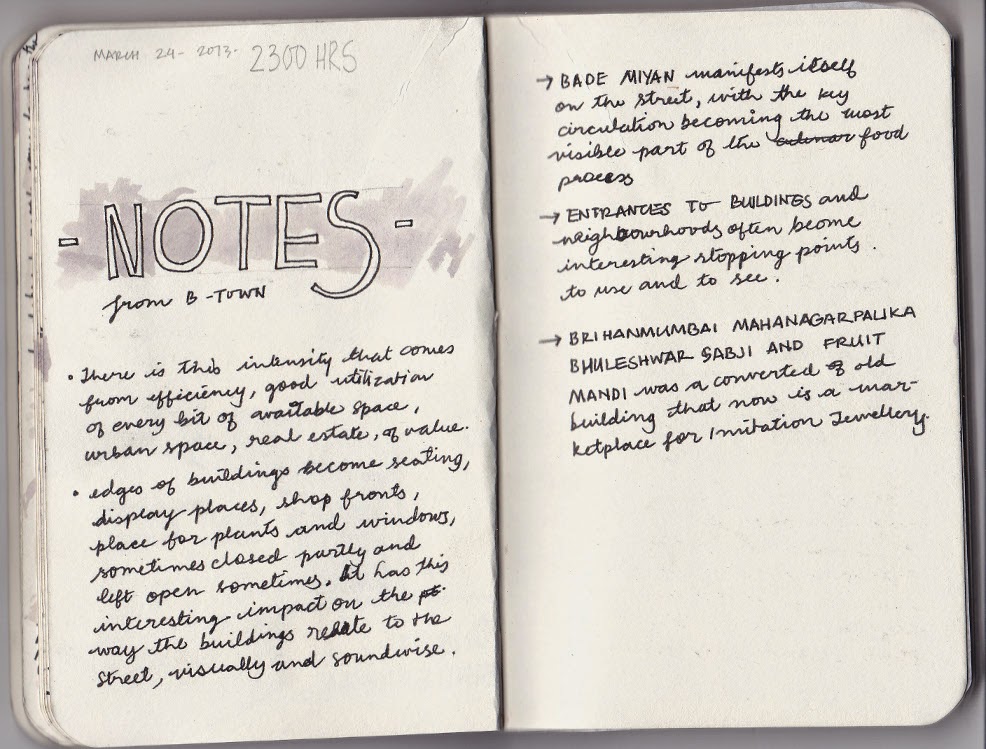 MARCH 24- 2013. 2300 HRS
- NOTES -
from B-TOWN
• There is this intensity that comes
from efficiency, good utilization
of every bit of available space,
urban space, real estate, of value.
• edges of buildings become seating,
display places, shop fronts,
place for plants and windows,
sometimes closed partly and
left open sometimes. It has this
interesting impact on the
way the buildings relate to the
street, visually and soundwise.
→ BADE MIYAN manifests itself
on the street, with the key
circulation becoming the most
visible part of the culinar food
process
→ ENTRANCES TO BUILDINGS and
neighbourhoods often become
interesting stopping points.
to use and to see.
→ BRIHANMUMBAI MAHANAGARPALIKA
BHULESHWAR SABJI AND FRUIT
MANDI was a converted old
building that now is a mar-
ketplace for Imitation Jewellery.